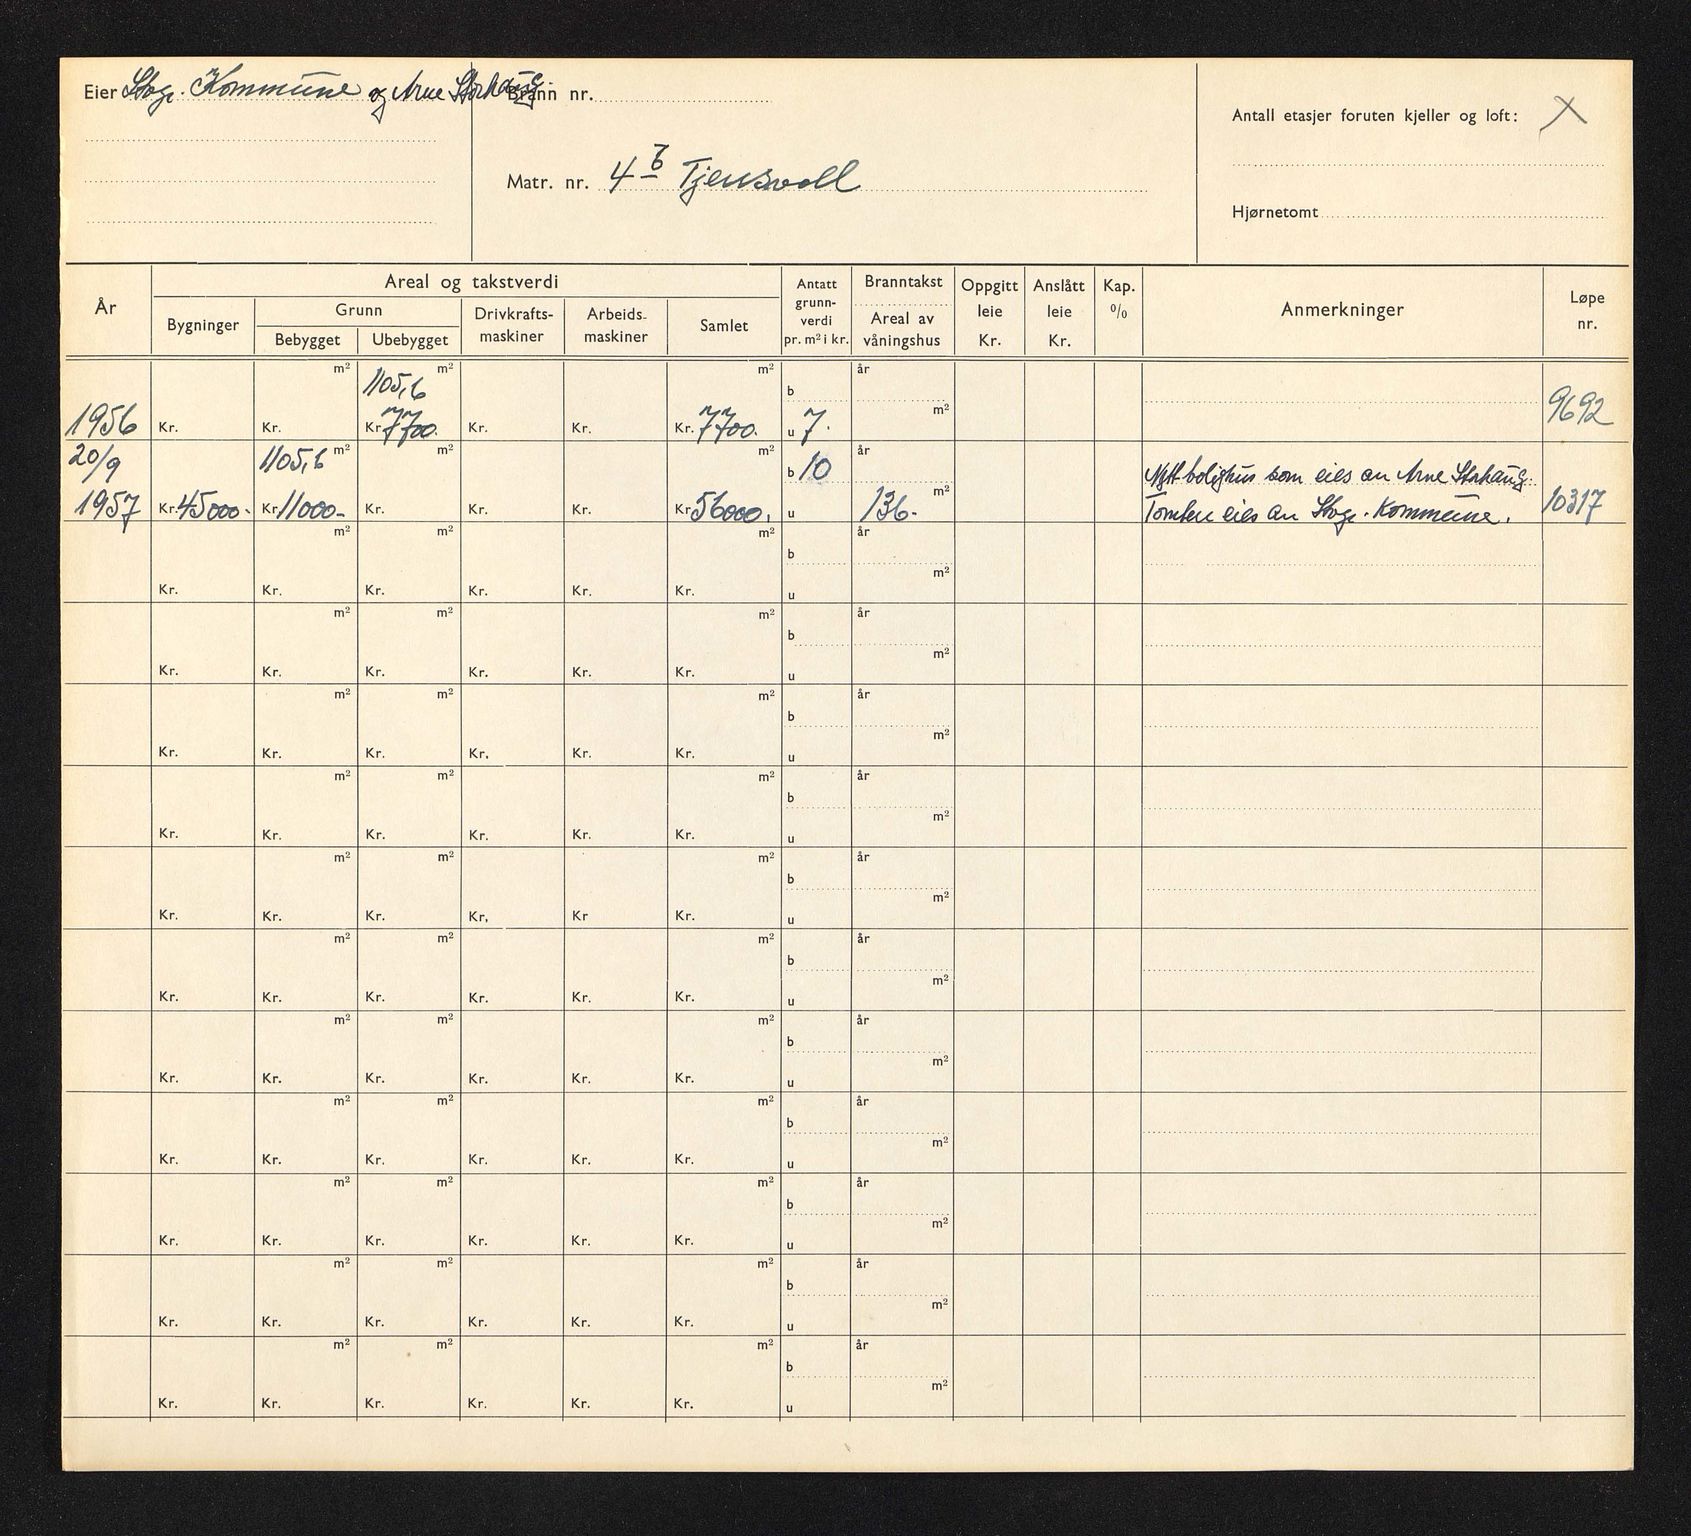 Eier Stvgr. Kommune og Arne Storhaug.
Brann nr.
Matr. nr. 4 b Tjensvoll
Antall etasjer foruten kjeller og loft: X
Hjørnetomt
År
Areal og takstverdi
Bygninger
Grunn
Bebygget Ubebygget
Drivkrafts-
maskiner
Arbeids-
maskiner
Samlet
Antatt
grunn-
verdi
pr. m² i kr.
Branntakst
Areal av
våningshus
Oppgitt
leie
Kr.
Anslått
leie
Kr.
Kap.
%
Anmerkninger
Løpe
nr.
m² 1105,6 m² m² b år
1956 Kr. Kr. Kr. 7700. Kr. Kr. Kr. 7700. u 7. m² 9692
20/9 1105,6 m² m² m² b 10 år Nytt bolighus som eies av Arne Storhaug.
1957 Kr. 45000.- Kr. 11000.- Kr. Kr. Kr. Kr. 56000. u 136.- m² Tomten eies av Stvgr. Kommune. 10317
m² m² m² b år
Kr. Kr. Kr. Kr. Kr. Kr. u m²
m² m² m² b år
Kr. Kr. Kr. Kr. Kr. Kr. u m²
m² m² m² b år
Kr. Kr. Kr. Kr. Kr. Kr. u m²
m² m² m² b år
Kr. Kr. Kr. Kr. Kr. Kr. u m²
m² m² m² b år
Kr. Kr. Kr. Kr. Kr Kr. u m²
m² m² m² b år
Kr. Kr. Kr. Kr. Kr. Kr. u m²
m² m² m² b år
Kr. Kr. Kr. Kr. Kr. Kr. u m²
m² m² m² b år
Kr. Kr. Kr. Kr. Kr. Kr. u m²
m² m² m² b år
Kr. Kr. Kr. Kr. Kr. Kr. u m²
m² m² m² b år
Kr. Kr. Kr. Kr. Kr. Kr. u m²
m² m² m² b år
Kr. Kr. Kr. Kr. Kr. Kr. u m²